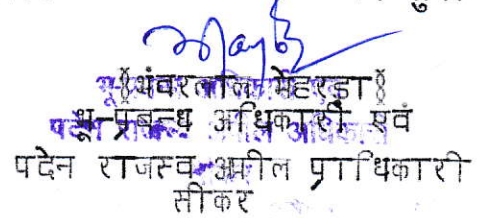 §भंवरलाल मेहरडा§
भू-प्रबन्ध अधिकारी एवं
पदेन राजस्व अपील प्राधिकारी
सीकर